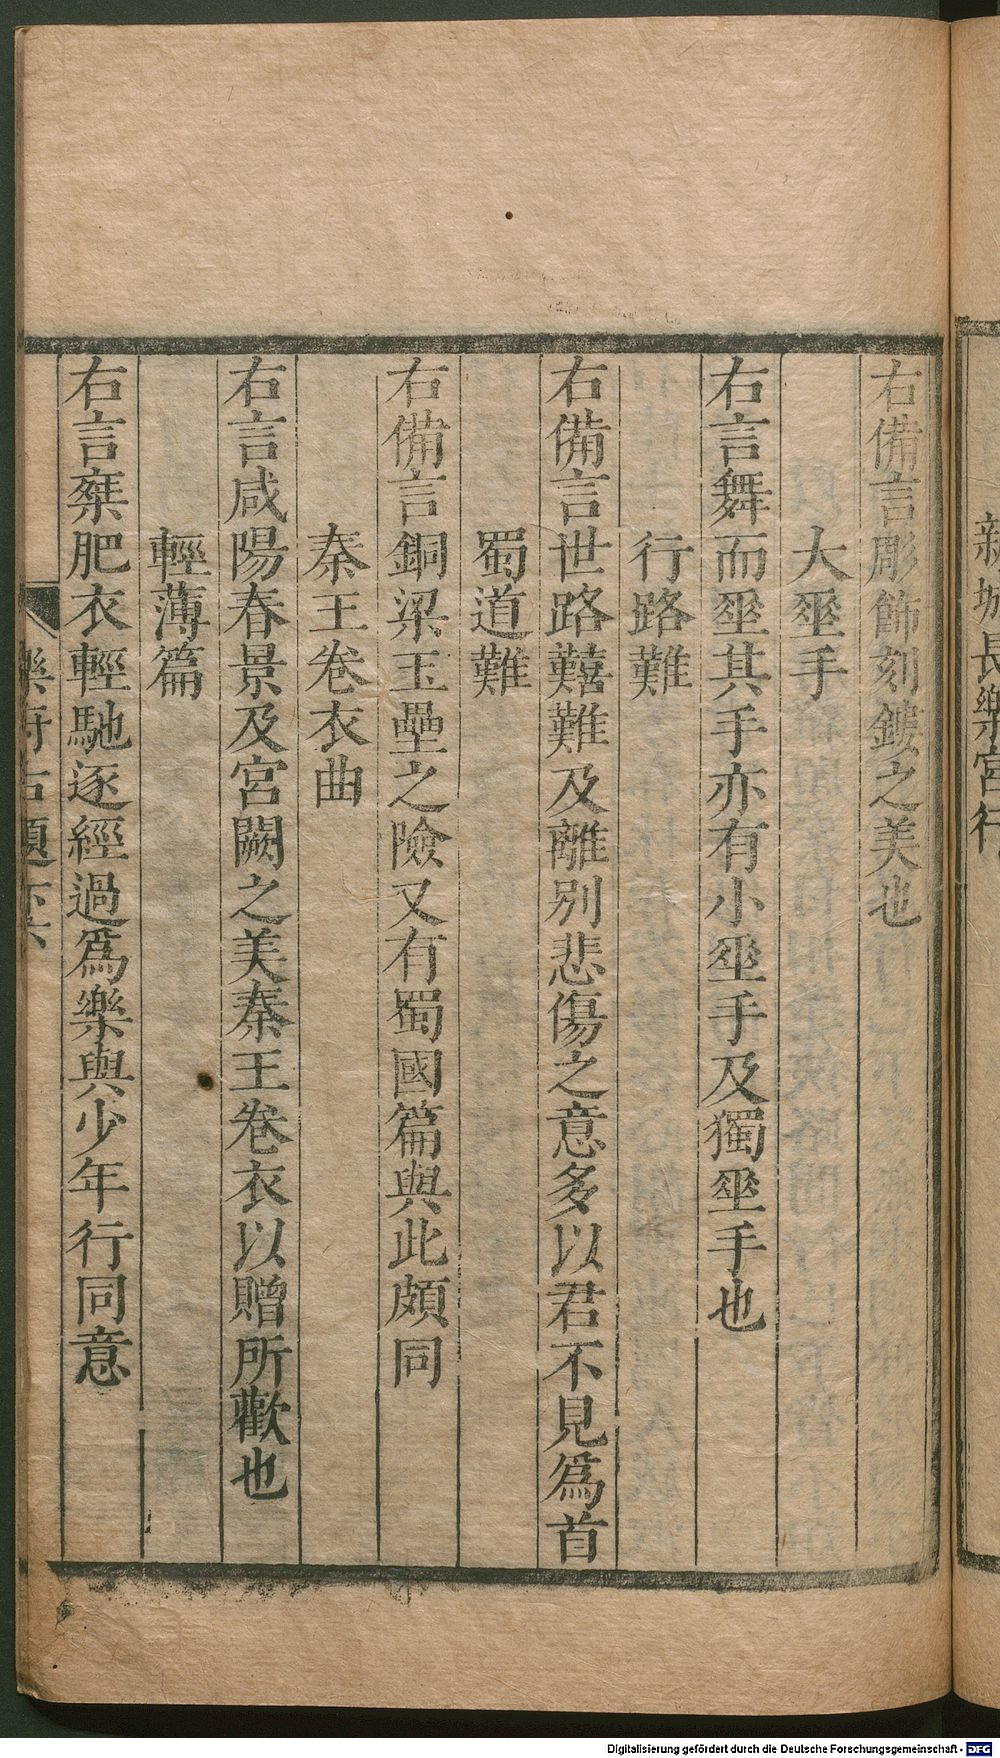 新城長樂宮行
右備言彫飾刻鏤之美也
大垂手
右言舞而垂其手亦有小垂手及獨垂手也
行路難
右備言世路囏難及離別悲傷之意多以君不見爲首
蜀道難
右備言銅梁玉壘之險又有蜀國篇與此頗同
秦王卷衣曲
右言咸陽春景及宮闕之美秦王卷衣以贈所歡也
輕薄篇
右言椉肥衣輕馳逐經過爲樂與少年行同意
樂府古題下 六
Digitalisierung gefördert durch die Deutsche Forschungsgemeinschaft - DFG